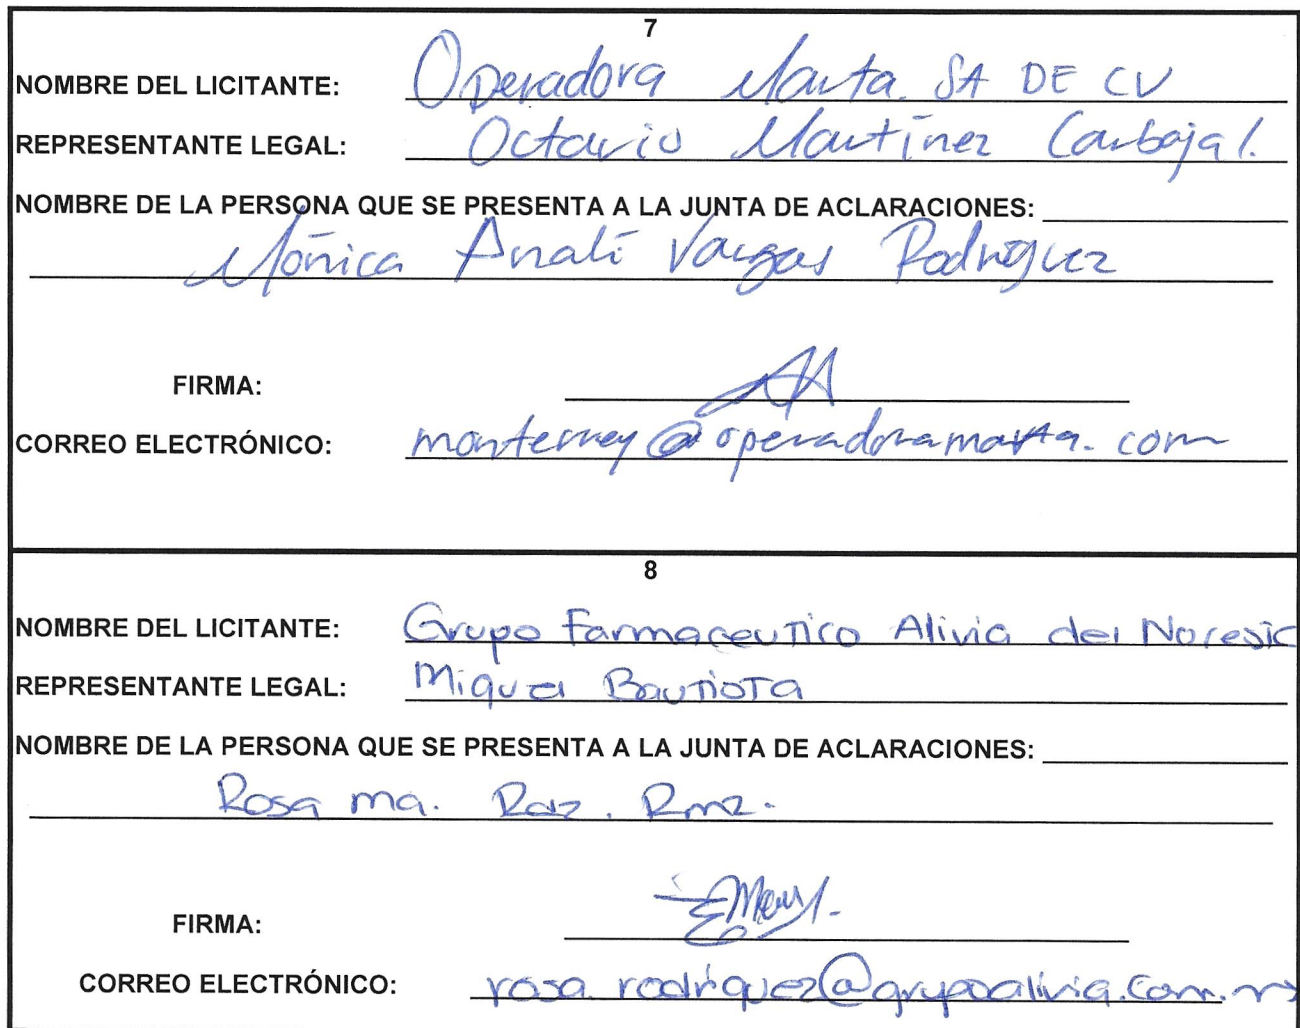 7
NOMBRE DEL LICITANTE: Operadora Marta. SA DE CV
REPRESENTANTE LEGAL: Octavio Martínez Carbajal.
NOMBRE DE LA PERSONA QUE SE PRESENTA A LA JUNTA DE ACLARACIONES:
Mónica Analí Vargas Rodríguez
FIRMA:
CORREO ELECTRÓNICO: monterrey@operadoramarta.com
8
NOMBRE DEL LICITANTE: Grupo Farmaceutico Alivia del
REPRESENTANTE LEGAL: Miguel Bautista
NOMBRE DE LA PERSONA QUE SE PRESENTA A LA JUNTA DE ACLARACIONES:
Rosa ma. Rdz. Rmz.
FIRMA:
CORREO ELECTRÓNICO: rosa.rodriguez@grupoalivia.com.mx